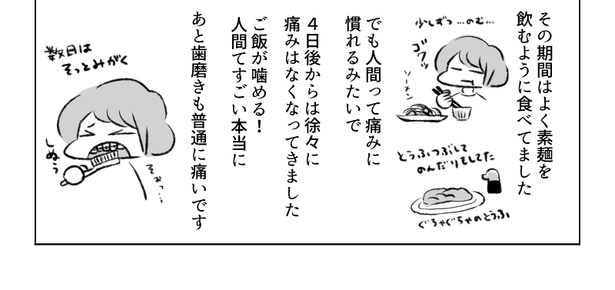 その期間はよく素麺を
飲むように食べてました
少しずつ…のむ…
ゴクッ
ソーメン
とうふつぶして
のんだりもしてた
ぐちゃぐちゃのとうふ
でも人間って痛みに
慣れるみたいで
4日後からは徐々に
痛みはなくなってきました
ご飯が噛める！
人間てすごい本当に
あと歯磨きも普通に痛いです
数日は
そっとみがく
しぬぅ